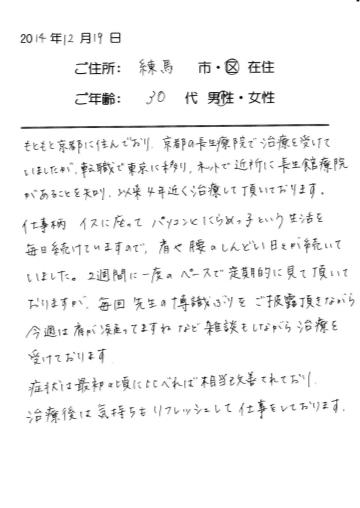 2014年12月19日
ご住所： 練馬 市・区 在住
ご年齢： 30 代 男性・女性
もともと京都に住んでおり、京都の長生療院で治療を受けて
いましたが、転職で東京に移り、ネットで近所に長生館療院
があることを知り、以来4年近く治療して頂いております。
仕事柄 イスに座って パソコンとにらめっ子という生活を
毎日続けていますので、肩や腰のしんどい日々が続いて
いました。2週間に一度のペースで定期的に見て頂いて
おりますが、毎回先生の博識ぶりをご披露頂きながら
今週は肩が凝ってますねなど雑談もしながら治療を
受けております。
症状は最初の頃に比べれば相当改善されており、
治療後は気持ちもリフレッシュして仕事をしております。